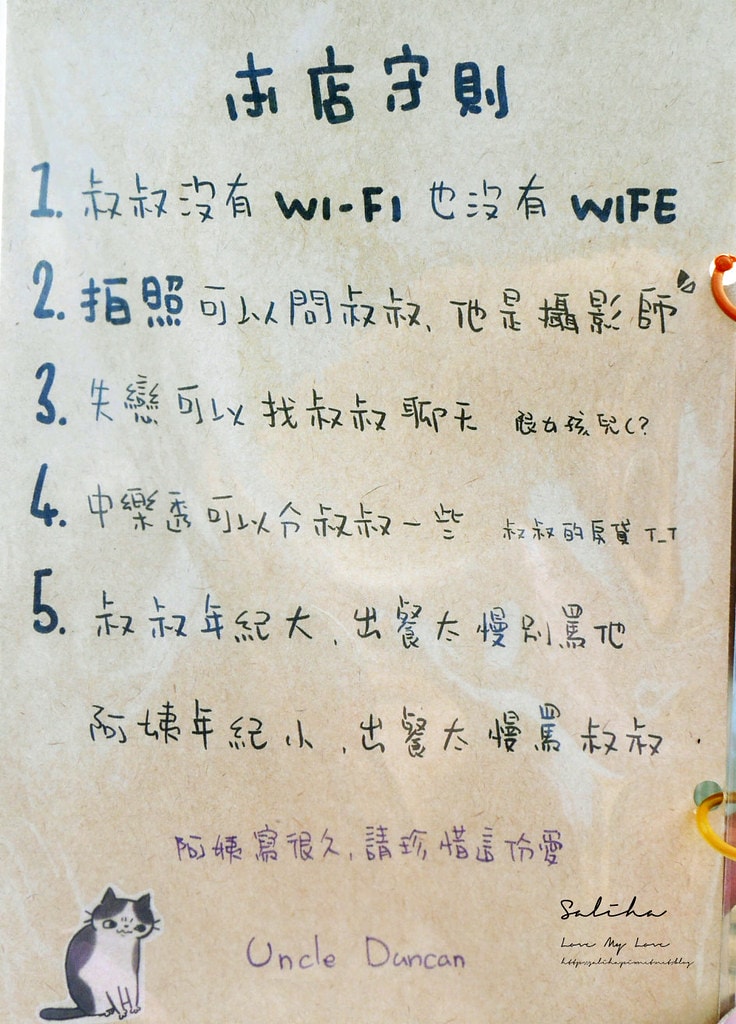 本店守則
1. 叔叔沒有 WI-FI 也沒有 WIFE
2. 拍照可以問叔叔, 他是攝影師
3. 失戀可以找叔叔聊天 限女孩兒(?
4. 中樂透可以分叔叔一些 叔叔的房貸 T_T
5. 叔叔年紀大, 出餐太慢別罵他
阿姨年紀小, 出餐太慢罵叔叔.
阿姨寫很久, 請珍惜這份愛
Uncle Duncan
Saliha
Love My Love
http://saliha.pixnet.net/blog